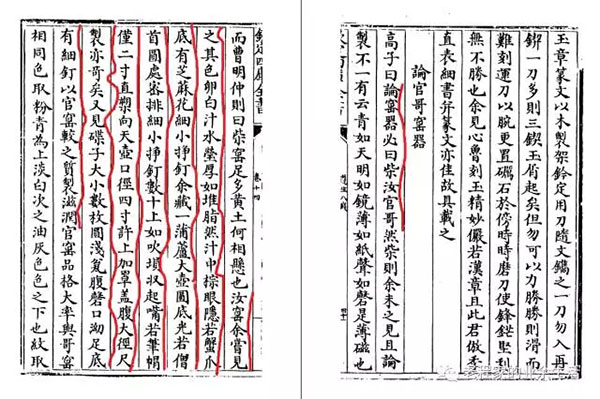 玉章篆文以木製架鈐定用刀隨文鐫之一刀勿入再
鍥一刀多則三鍥玉屑起矣但勿可以力勝勝則滑而
難刻運刀以腕更置礪石於傍時時磨刀使鋒鋩堅利
無不勝也余見心魯刻玉精妙儼若漢章且此君倣禿
直表細書并篆文亦佳故具載之
論官哥窑器
高子曰論窑器必曰柴汝官哥然柴則余未之見且論
製不一有云青如天明如鏡薄如紙聲如磬是薄磁也
欽定四庫全書
卷十四
遵生八牋
而曹明仲則曰柴窑足多黄土何相懸也汝窑余嘗見
之其色卵白汁水瑩厚如堆脂然汁中棕眼隱若蟹爪
底有芝麻花細小挣釘余藏一蒲蘆大壺圓底光若僧
首圓處密排細小挣釘數十上如吹塤收起嘴若筆帽
僅二寸直槊向天壺口徑四寸許上加罩盖腹大徑尺
製亦奇矣又見碟子大小數枚圓淺瓮腹磬口泑足底
有細釘以官窑較之質製滋潤官窑品格大率與哥窑
相同色取粉青為上淡白次之油灰色色之下也紋取